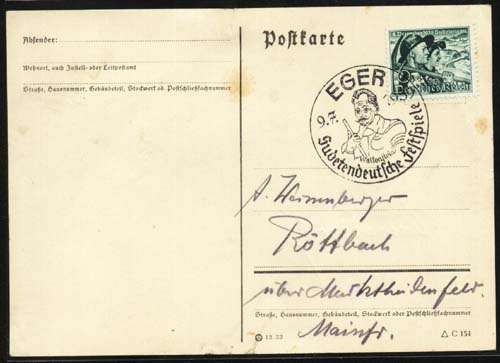 Absender:
Wohnort, auch Zustell- oder Leitpostamt
Straße, Hausnummer, Gebäudeteil, Stockwerk od. Postschließfachnummer
Postkarte
EGER
9.7.
Wallenstein
Sudetendeutsche Festspiele
Deutsches Reich
A. Weinenberger
Röttbach
über Marktheidenfeld.
Straße, Hausnummer, Gebäudeteil, Stockwerk oder Postschließfachnummer
Mainfr.
C 154